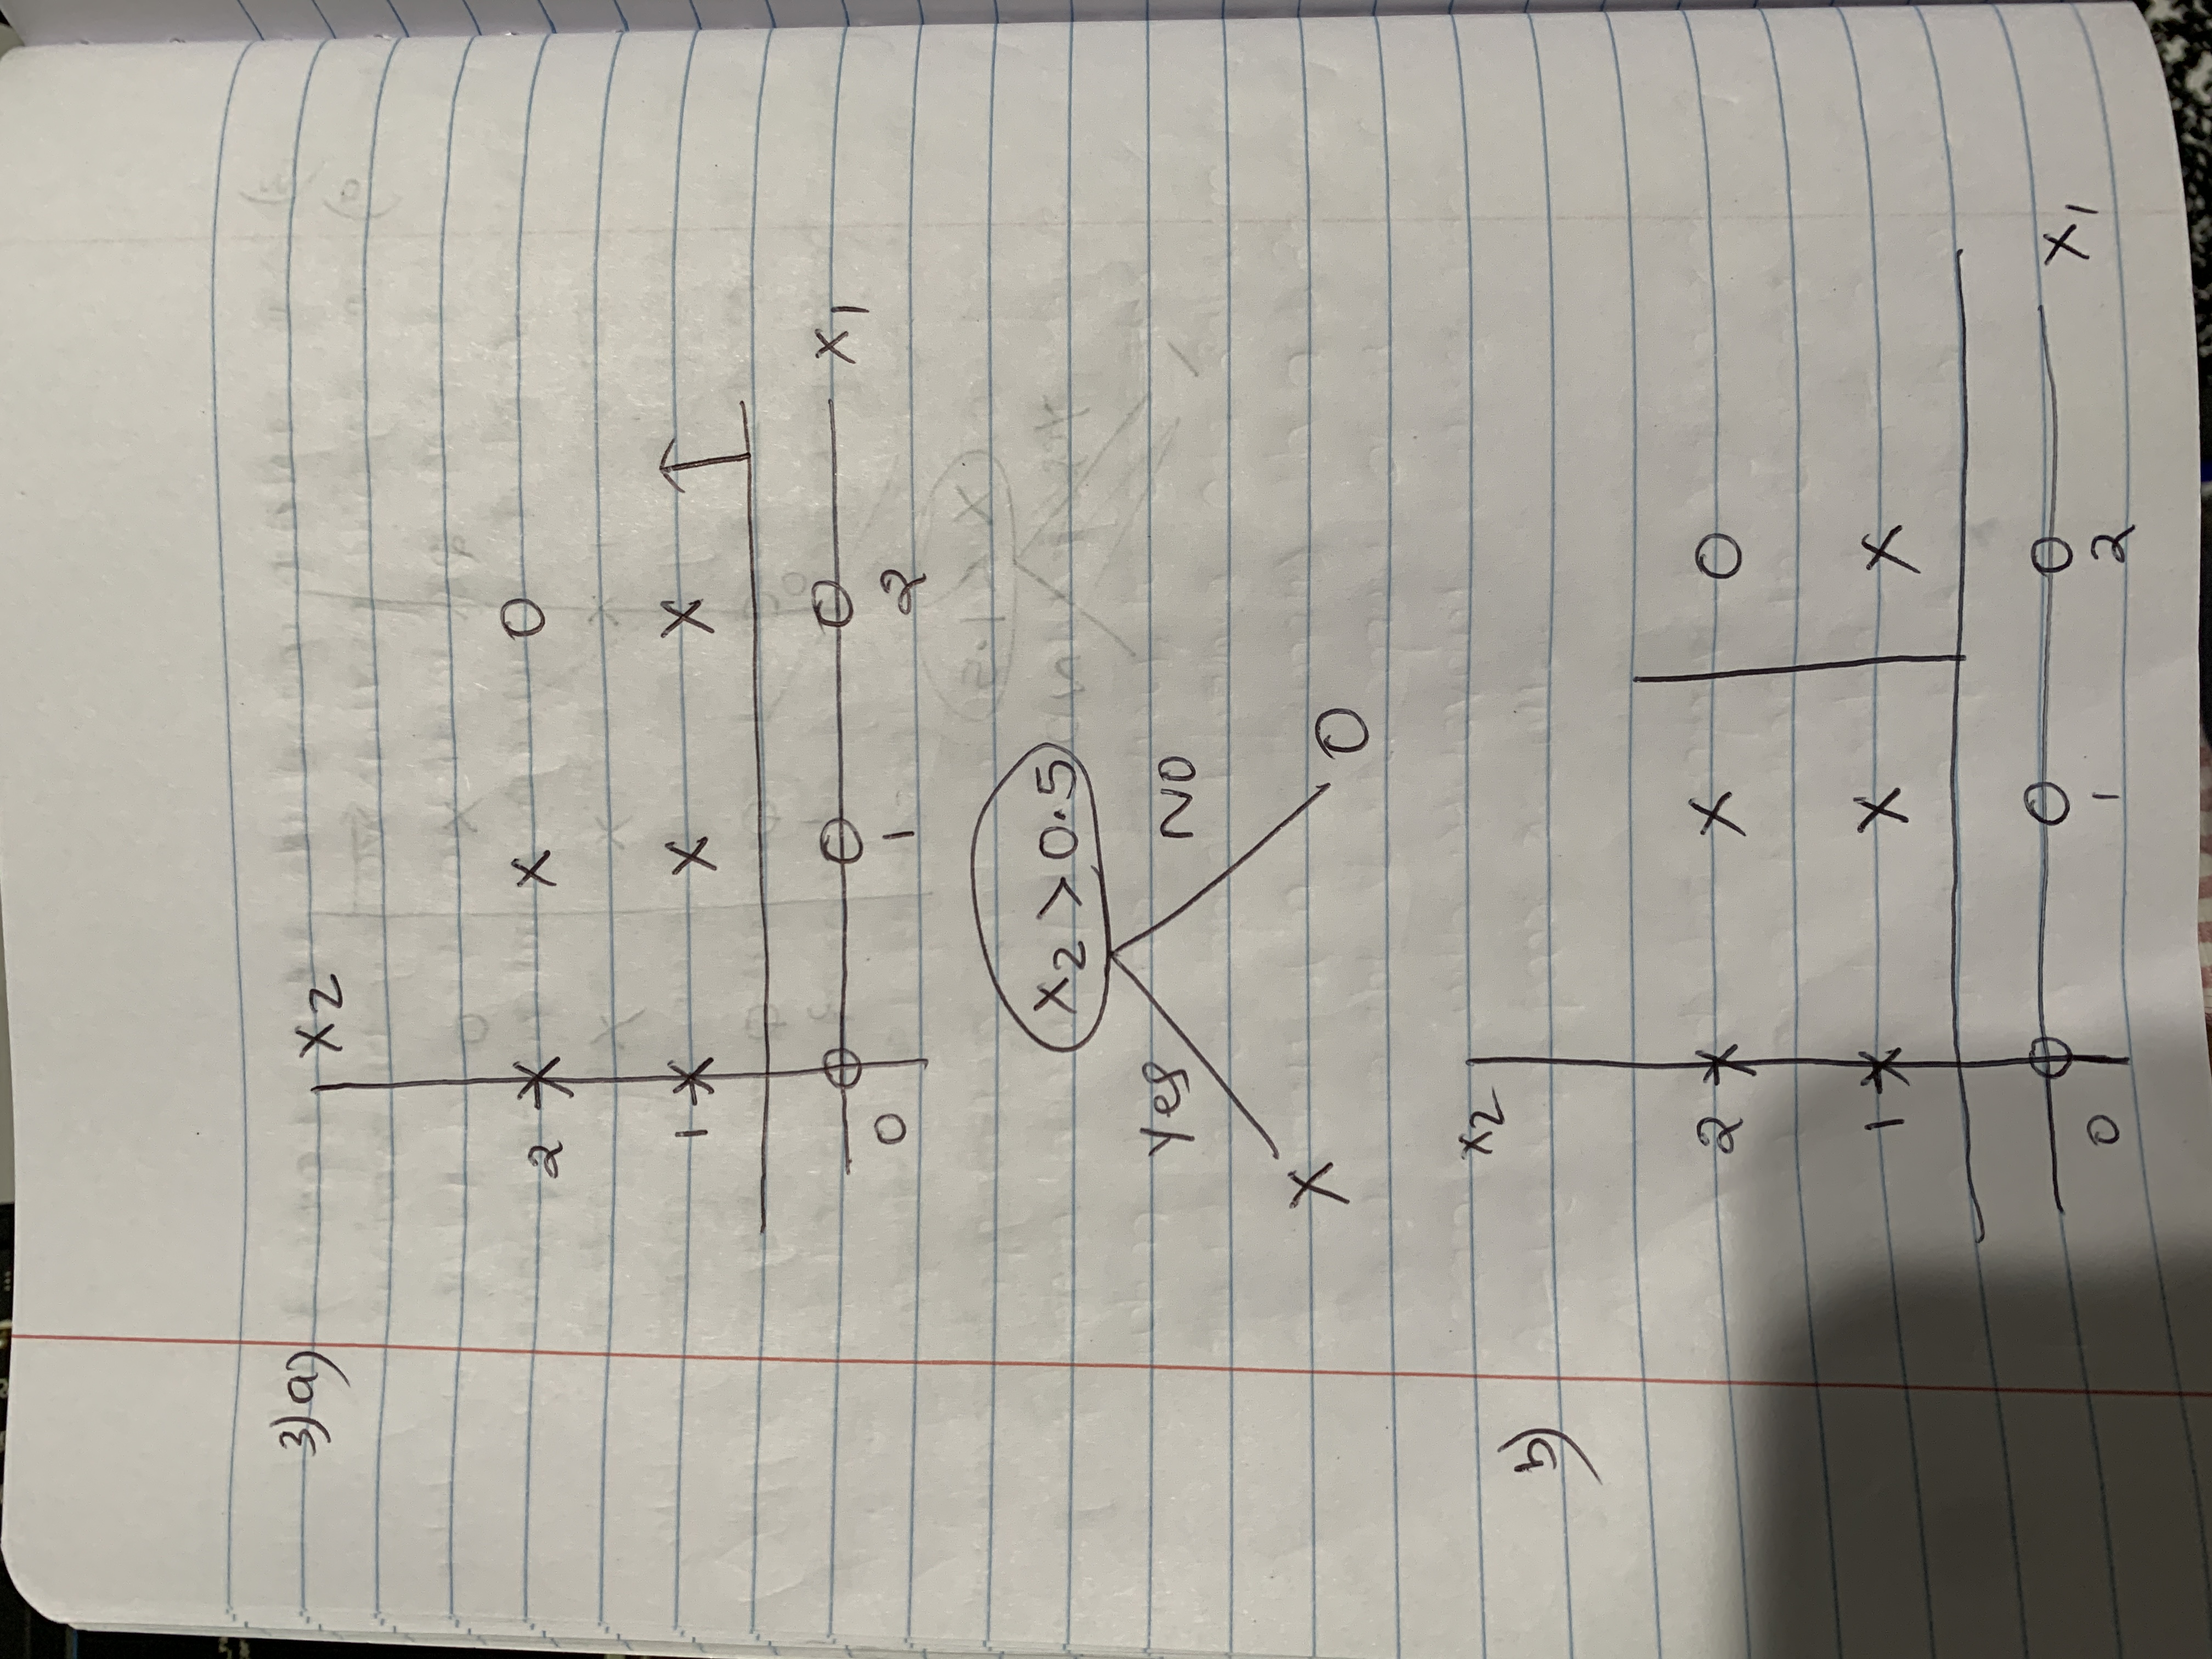 3) a)
x2
2 x x O
1 x x x
O O O x1
0 1 2
x2 > 0.5
Yes NO
X O
b)
x2
2 x x O
1 x x x
O O O x1
0 1 2